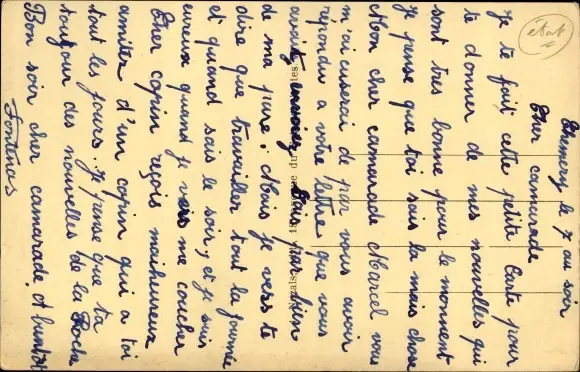 état
le 7 au soir
Cher camarade
Je te fait cette petite Carte pour
te donner de mes nouvelles qui
sont tres bonne pour le moment
Je pense que toi sais la mais chose
Mon cher camarade Marcel vous
m'aicuserai de par vous avoir
répondu a votre lettre que vous
avait envoiez Sais pas bien
de ma Mais je vers te
dire que travailler tout la journée
et quand sais le soir, et je suis
eureux quand je vers me coucher
Cher copin reçois maiheureux
amitez d'un copin qui a toi
tout les jours. Je pense que ta
toujour des nouvelles de la Roche
Bon soir cher camarade, A bientot